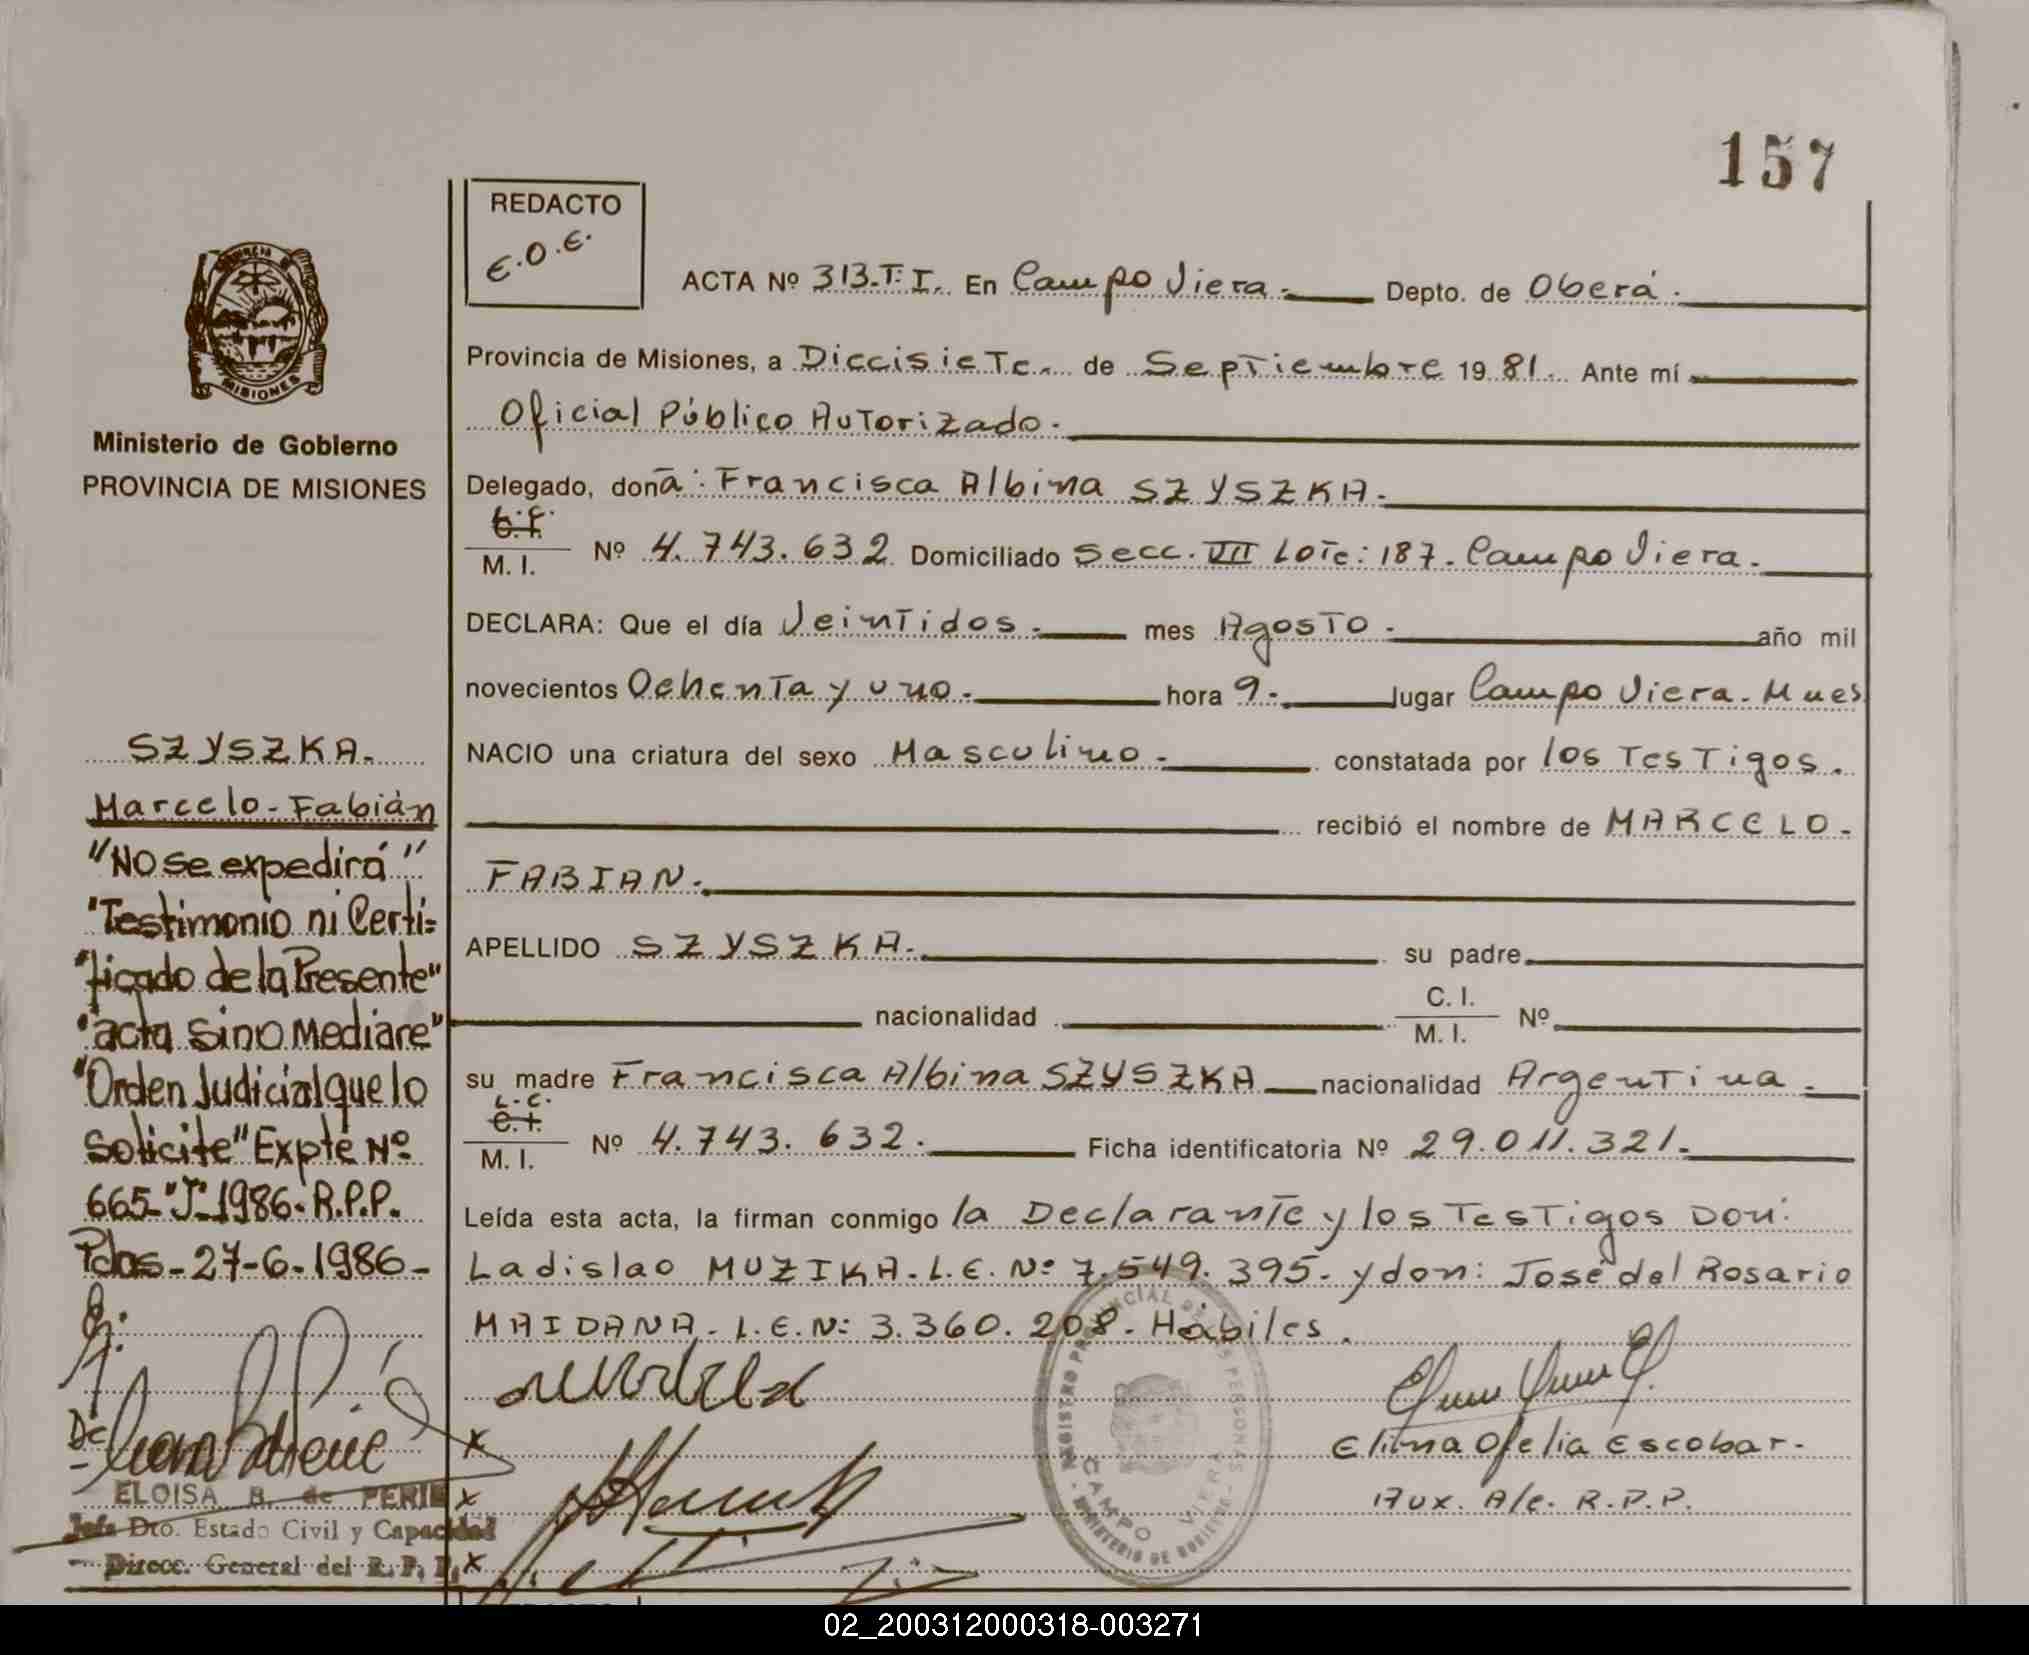 157
REDACTO
E.O.E.
ACTA Nº 313.T.I. En Campo Viera.- Depto. de Oberá.
Provincia de Misiones, a Diecisiete. de Septiembre 1981. Ante mí
Oficial Público Autorizado.
Delegado, doña: Francisca Albina SZYSZKA.
M. I. Nº 4.743.632 Domiciliado Secc. VII Lote: 187. Campo Viera.
DECLARA: Que el día Veintidos.- mes Agosto.- año mil
novecientos Ochenta y uno.- hora 9.- lugar Campo Viera. Mnes
NACIO una criatura del sexo Masculino.- constatada por los Testigos.
recibió el nombre de MARCELO.
FABIAN.
APELLIDO SZYSZKA. su padre
nacionalidad C. I. M. I. Nº
su madre Francisca Albina SZYSZKA nacionalidad Argentina.
L.C. C.I. M. I. Nº 4.743.632. Ficha identificatoria Nº 29.011.321.
Leída esta acta, la firman conmigo la Declarante y los Testigos Don:
Ladislao MUZIKA. L.E. Nº 7.549.395. y don: José del Rosario
MAIDANA. L.E.N: 3.360.208. Hábiles.
Elinna Ofelia Escobar.
Aux. A/c. R.P.P.
REGISTRO PROVINCIAL DE LAS PERSONAS
CAMPO VIERA
MINISTERIO DE GOBIERNO
PROVINCIA DE
MISIONES
Ministerio de Gobierno
PROVINCIA DE MISIONES
SZYSZKA.
Marcelo-Fabián
"NO se expedirá"
"Testimonio ni Certi=
"ficado de la Presente"
"acta sino Mediare"
"Orden Judicial que lo
Solicite" Expte Nº
665-"J"-1986-R.P.P.
Pdas-27-6-1986-
ELOISA B. de PERIE
Jefa Dto. Estado Civil y Capacidad
Direcc. General del R. P. P.
x
x
x
02_200312000318-003271